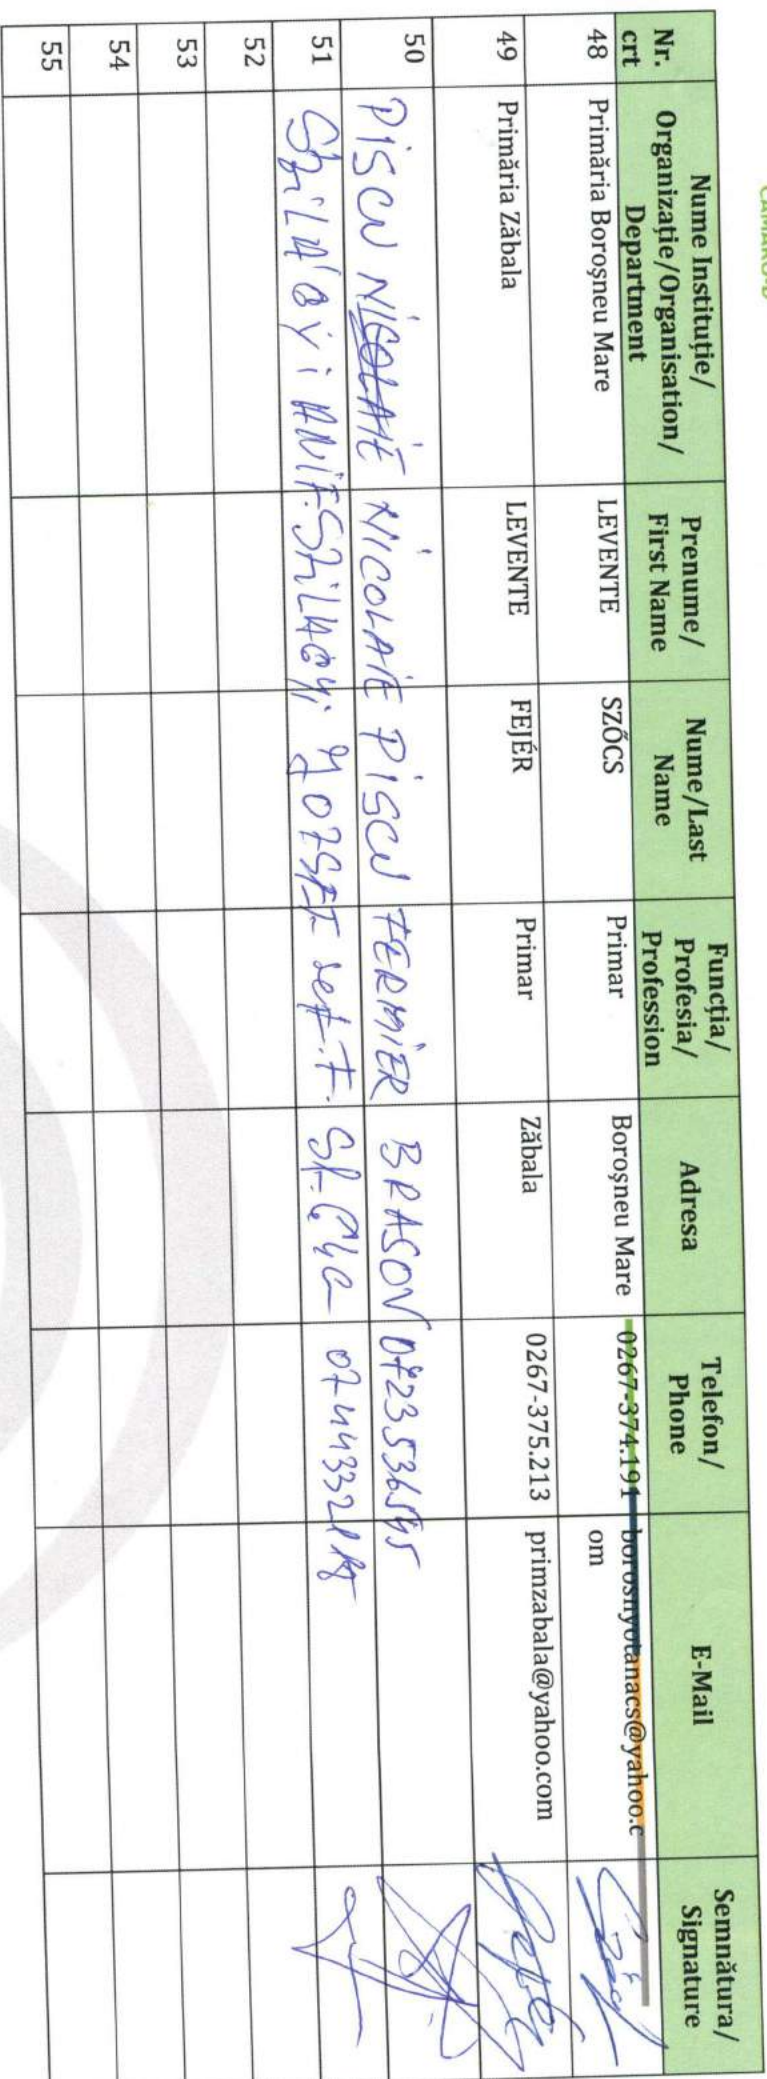 CAMARO-D
Nr. crt | Nume Instituție/ Organizație/Organisation/ Department | Prenume/ First Name | Nume/Last Name | Funcția/ Profesia/ Profession | Adresa | Telefon/ Phone | E-Mail | Semnătura/ Signature
48 | Primăria Boroșneu Mare | LEVENTE | SZŐCS | Primar | Boroșneu Mare | 0267-374.191 | borosnyotanacs@yahoo.com
49 | Primăria Zăbala | LEVENTE | FEJÉR | Primar | Zăbala | 0267-375.213 | primzabala@yahoo.com
50 | PISCU NICOLAIE | NICOLAIE | PISCU | FERMIER | BRASOV
51
52
53
54
55